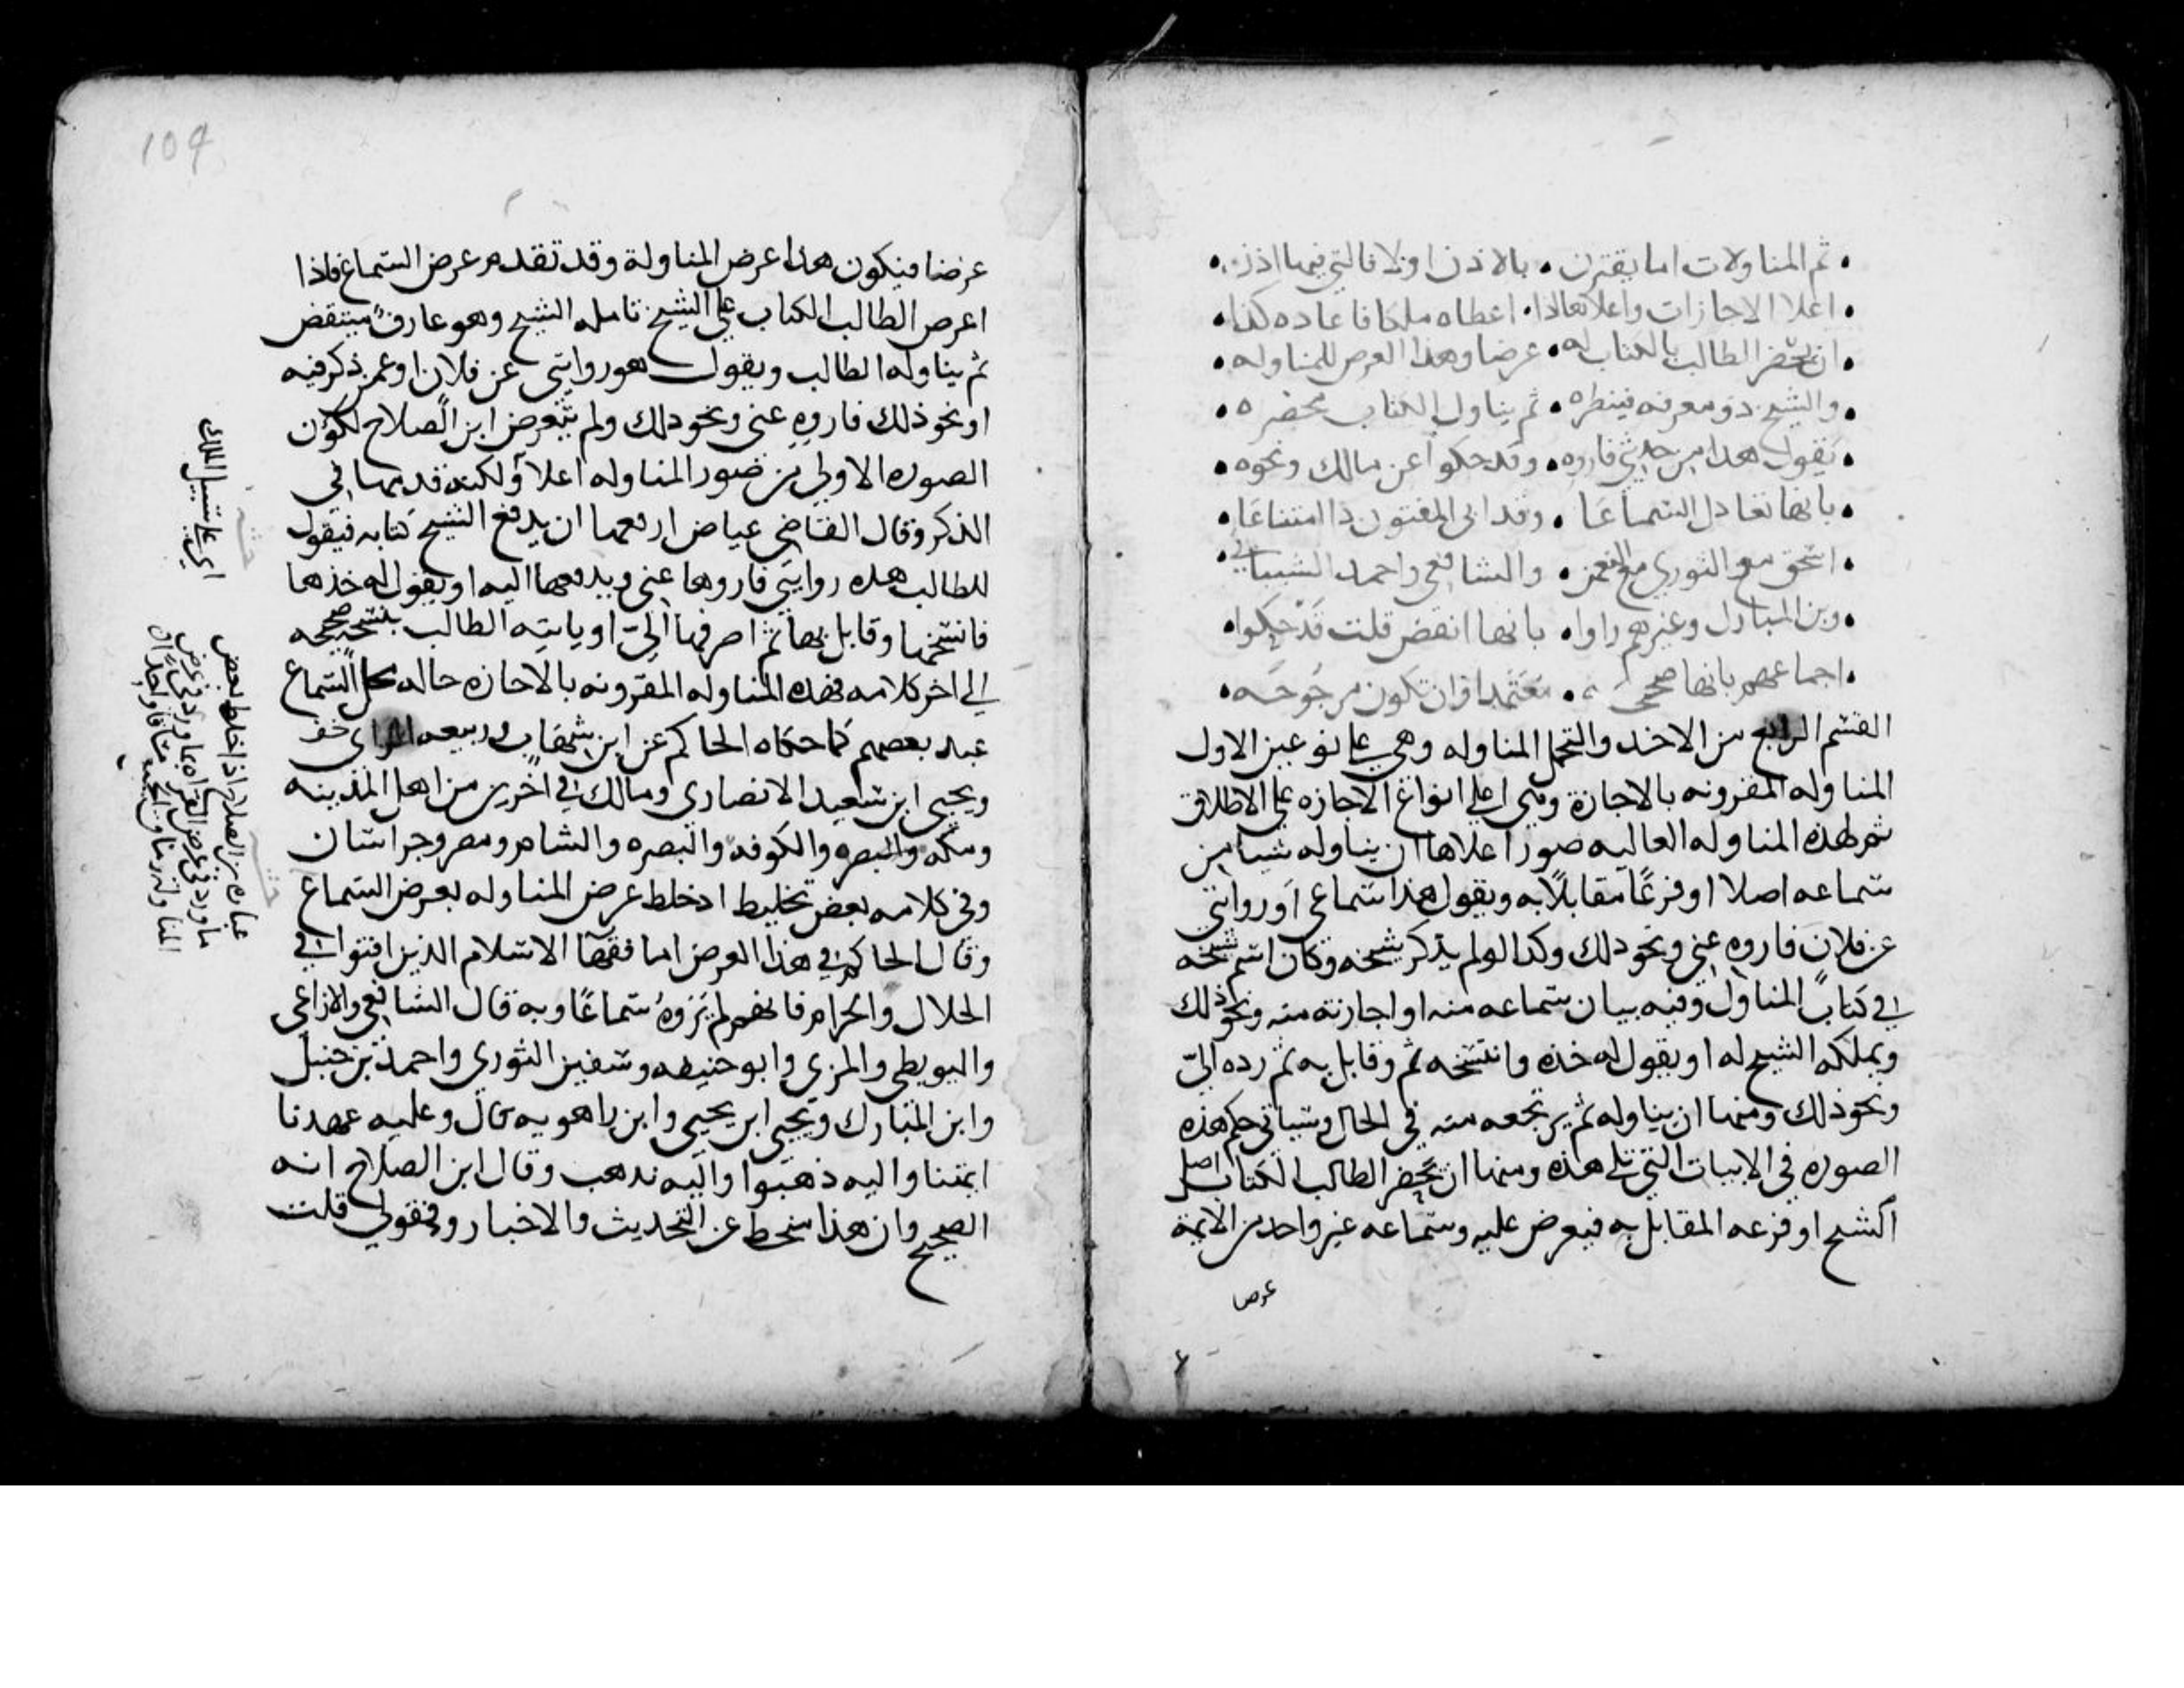 ثم المناولات اما يقترن • بالاذن اولا فالتي فيها اذن
اعلا الاجازات واعلاها اذا • اعطاه ملكا فاعاده كذا
ان يحضر الطالب بالكتاب له • عرضا وهذا العرض للمناوله
والشيخ ذو معرفه فينظره • ثم يناول الكتاب محضره
يقول هذا من حديثي فاروه • وقد حكوا عن مالك ونحوه
بانها تعادل السماعا • وقد ابى المفتون ذا امتناعا
اسحق مع الثوري مع النعمن • والشافعي واحمد الشيباني
وبن المبارك وغيرهم راوا • بانها انقص قلت قد حكوا
اجماعهم بانها صحيحه • معتمدا وان تكون مرجوحه
القسم الرابع من الاخذ والتحمل المناوله وهي على نوعين الاول
المناوله المقرونه بالاجازة وهي اعلي انواع الاجازه على الاطلاق
ثم لهذه المناوله العاليه صور اعلاها ان يناوله شيا من
سماعه اصلا او فرعًا مقابلًا به ويقول هذا سماعي او روايتي
عن فلان فاروه عني ونحو ذلك وكذا لو لم يذكر شيخه وكان اسم شيخه
في كتاب المناول وفيه بيان سماعه منه او اجازته منه ونحو ذلك
ويملكه الشيخ له او يقول له خذه وانتسخه ثم وقابل به ثم رده الي
ونحو ذلك ومنها ان يناوله ثم يرتجعه منه في الحال وسياتي حكم هذه
الصوره في الابيات التي تلي هذه ومنها ان يحضر الطالب الكتاب اصل
الشيخ او فرعه المقابل به فيعرض عليه وسماعه غير واحد من الايمة
عرضا
104
عرضا فيكون هذا عرض المناولة وقد تقدم عرض السماع فاذا
اعرض الطالب الكتاب على الشيخ تامله الشيخ وهو عارف متيقض
ثم يناوله الطالب ويقول هو روايتي عن فلان او عمن ذكر فيه
او نحو ذلك فاروه عني ونحو ذلك ولم يتعرض ابن الصلاح لكون
الصوره الاولي من صور المناوله اعلا ولكنه قدمها في
الذكر وقال القاضي عياض ارفعها ان يدفع الشيخ كتابه فيقول
للطالب هذه روايتي فاروها عني ويدفعها اليه او يقول له خذها
فانتسخها وقابل بها ثم اصرفها الي او ياتيه الطالب بنسخه صحيحه
الى اخر كلامه فهذه المناوله المقرونه بالاجازه حاله محل السماع
عند بعضهم كما حكاه الحاكم عن ابن شهاب وربيعه الراي
ويحيى ابن سعيد الانصاري ومالك في اخرين من اهل المدينه
ومكه والبصره والكوفه والبصره والشام ومصر وخراسان
وفي كلامه بعض تخليط اذ خلط عرض المناوله بعرض السماع
وقال الحاكم في هذا العرض اما فقهآ الاسلام الذين افتوا في
الحلال والحرام فانهم لم يروه سماعًا وبه قال الشافعي والازاعي
والبويطي والمزي وابو حنيفه وسفين الثوري واحمد بن حنبل
وابن المبارك ويحيى ابن يحيى وابن راهويه قال وعليه عهدنا
ايمتنا واليه ذهبوا واليه نذهب وقال ابن الصلاح انه
الصحيح وان هذا منحط عن التحديث والاخبار وفقولي قلت
اي على سبيل الملك
عباره بن الصلاح اذ خلط بعض
ما ورد في عرض القراه بما ورد في عرض
المناوله